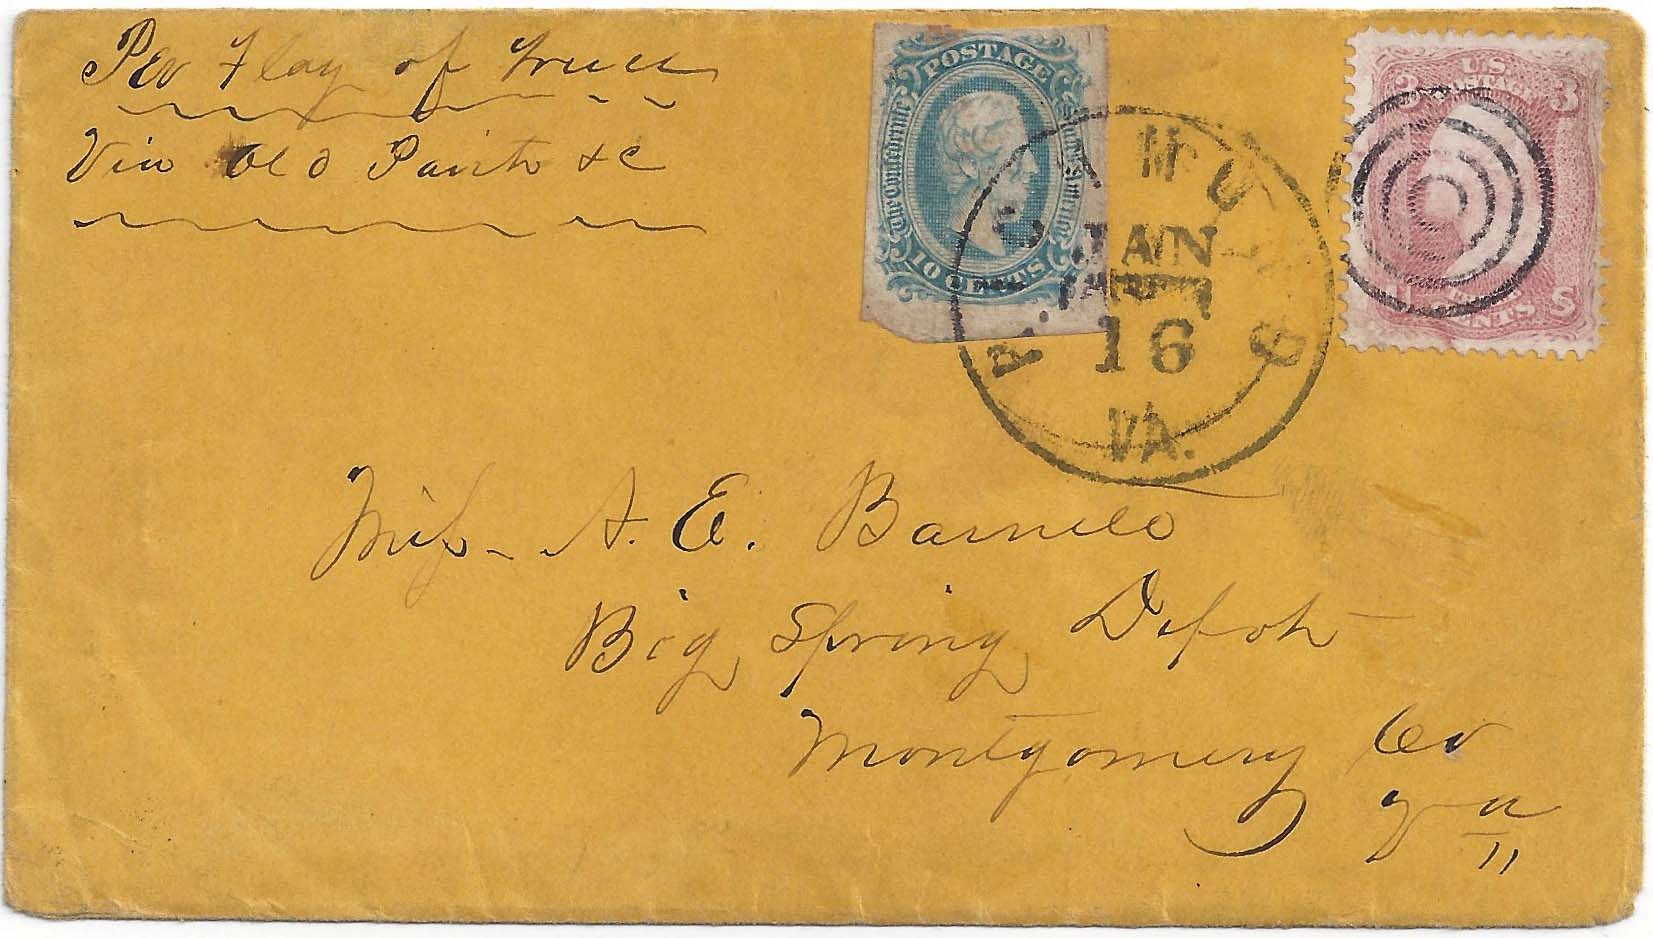 Per Flag of Truce
Via Old Point & C
POSTAGE
The Confederate States of America
10 CENTS
U.S. POSTAGE
3 3
CENTS
JAN
16
VA.
Miss A. E.
Big Spring Depot
Montgomery Co
Va